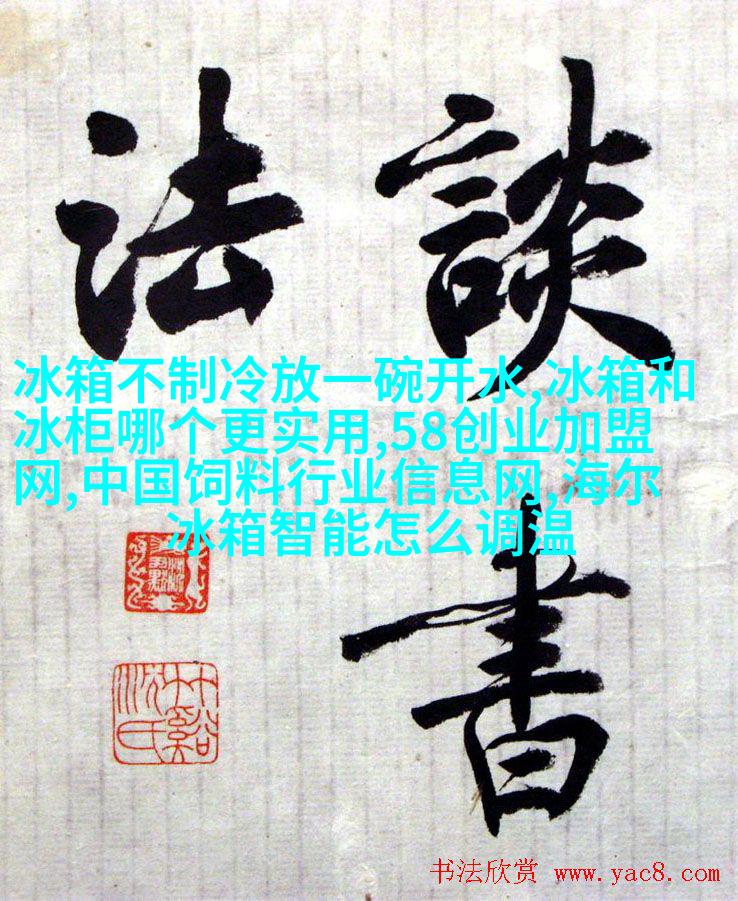 談書
法
冰箱不制冷放一碗开水,冰箱和
冰柜哪个更实用,58创业加盟
网,中国饲料行业信息网,海尔
冰箱智能怎么调温
书法欣赏 www.yac8.com